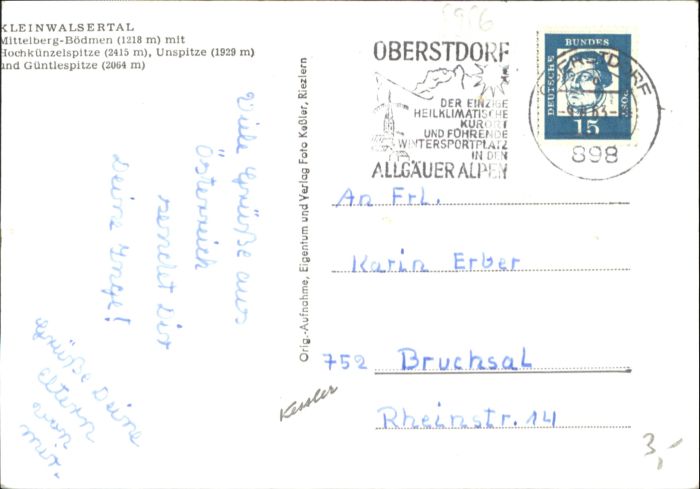 KLEINWALSERTAL
Mittelberg-Bödmen (1218 m) mit
Hochkünzelspitze (2415 m), Unspitze (1929 m)
und Güntlespitze (2064 m)
Viele Grüße aus
Österreich
sendet Dir
Deine Inge!
Grüße Deine
Eltern
von
mir.
Orig.-Aufnahme, Eigentum und Verlag Foto Keßler, Riezlern
Kessler
OBERSTDORF
DER EINZIGE
HEILKLIMATISCHE
KURORT
UND FÜHRENDE
WINTERSPORTPLATZ
IN DEN
ALLGÄUER ALPEN
OBERSTDORF
898
DEUTSCHE BUNDESPOST
15
An Frl.
Karin Erber
752 Bruchsal
Rheinstr. 14
3,-